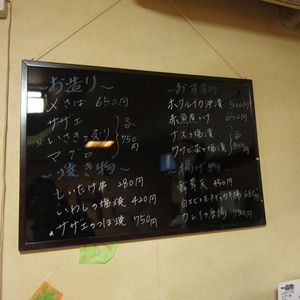 ~お造り~
〆さば 650円
サザエ
いさきの炙り
マグロ
各750円
~おすすめ~
ホタルイカ沖漬 500円
赤魚煮つけ 650円
ナスの揚漬
ワサビ菜の揚漬
各300円
~焼き物~
しいたけ串 280円
いわしの塩焼 420円
サザエのつぼ焼 750円
~揚げ物~
舞茸天 450円
カレイの唐揚 750円